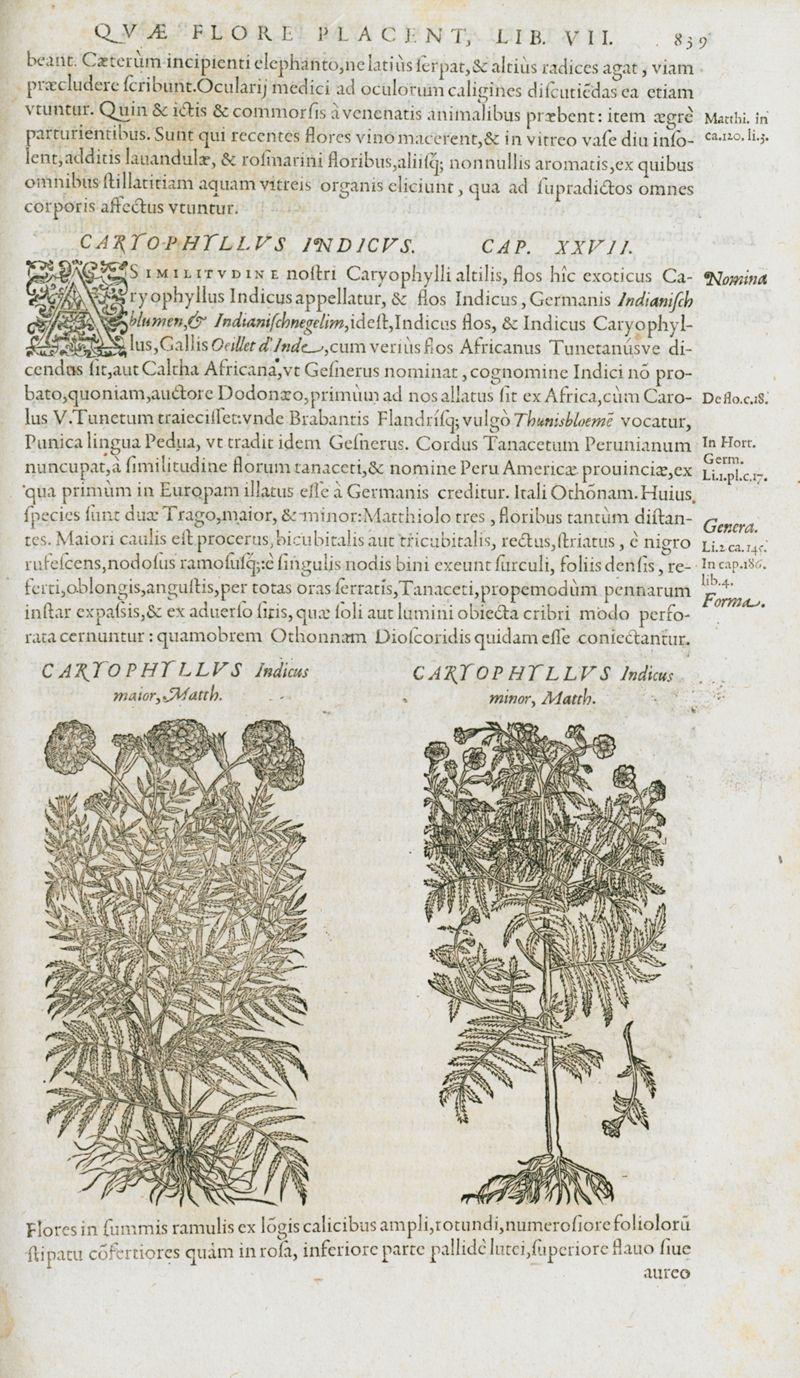 QVÆ FLORE PLACENT, LIB. VII. 839
beant. Cæterùm incipienti elephanto, ne latiùs ſerpat, & altiùs radices agat, viam
præcludere ſcribunt. Ocularij medici ad oculorum caligines diſcutiēdas ea etiam
vtuntur. Quin & ictis & commorſis à venenatis animalibus præbent: item ægrè
Matthi. in
parturientibus. Sunt qui recentes flores vino macerent, & in vitreo vaſe diu inſo-
ca.120. li.3.
lent, additis lauandulæ, & roſmarini floribus, aliiſq; nonnullis aromatis, ex quibus
omnibus ſtillatitiam aquam vitreis organis eliciunt, qua ad ſupradictos omnes
corporis affectus vtuntur.
CARYOPHYLLVS INDICVS. CAP. XXVII.
A SIMILITVDINE noſtri Caryophylli altilis, flos hîc exoticus Ca-
Nomina
ryophyllus Indicus appellatur, & flos Indicus, Germanis Indianiſch
blumen, & Indianiſchnegelim, ideſt, Indicus flos, & Indicus Caryophyl-
lus, Gallis Oeillet d'Inde, cum veriùs flos Africanus Tunetanúsve di-
cendus ſit, aut Caltha Africana, vt Geſnerus nominat, cognomine Indici nō pro-
bato, quoniam, auctore Dodonæo, primùm ad nos allatus ſit ex Africa, cùm Caro-
De flo.c.18.
lus V. Tunetum traieciſſet: vnde Brabantis Flandríſq; vulgò Thunisbloemē vocatur,
Punica lingua Pedua, vt tradit idem Geſnerus. Cordus Tanacetum Perunianum
In Hort.
Germ.
nuncupat, à ſimilitudine florum tanaceti, & nomine Peru Americæ prouinciæ, ex
Li.1.pl.c.17.
qua primùm in Europam illatus eſſe à Germanis creditur. Itali Othōnam. Huius
ſpecies ſunt duæ Trago, maior, & minor: Matthiolo tres, floribus tantùm diſtan-
Genera.
tes. Maiori caulis eſt procerus, bicubitalis aut tricubitalis, rectus, ſtriatus, è nigro
Li.1.ca.145.
rufeſcens, nodoſus ramoſuſq;: è ſingulis nodis bini exeunt ſurculi, foliis denſis, re-
In cap.186.
lib.4.
ferti, oblongis, anguſtis, per totas oras ſerratis, Tanaceti, propemodùm pennarum
Forma.
inſtar expaſsis, & ex aduerſo ſitis, quæ ſoli aut lumini obiecta cribri modo perfo-
rata cernuntur: quamobrem Othonnam Dioſcoridis quidam eſſe coniectantur.
CARYOPHYLLVS Indicus
maior, Matth.
CARYOPHYLLVS Indicus
minor, Matth.
Flores in ſummis ramulis ex lōgis calicibus ampli, rotundi, numeroſiore foliolorū
ſtipatu cōfertiores quàm in roſa, inferiore parte pallidè lutei, ſuperiore flauo ſiue
aureo